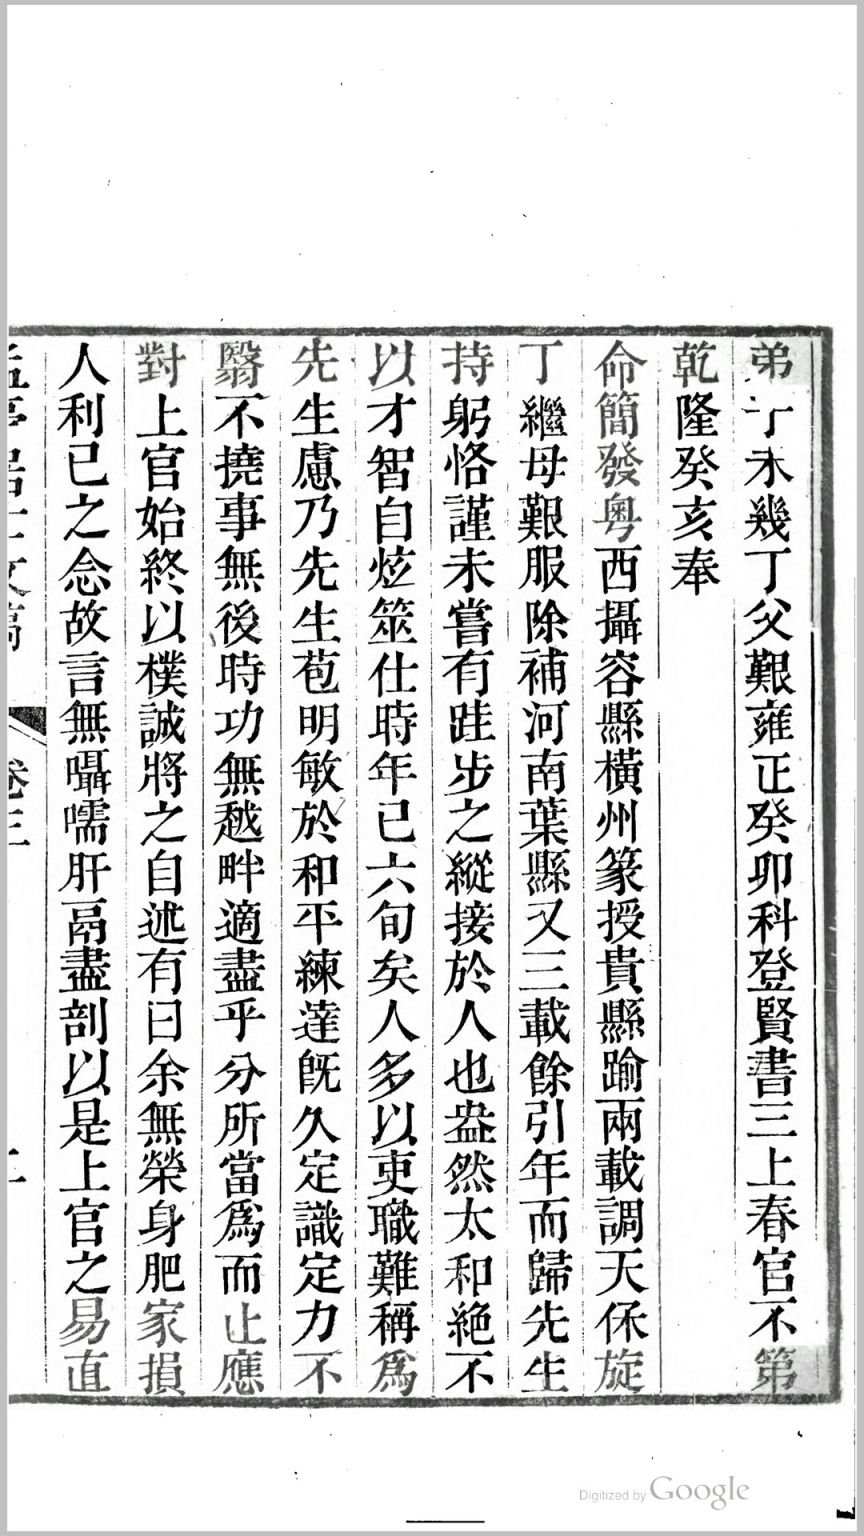 弟子未幾丁父艱雍正癸卯科登賢書三上春官不第
乾隆癸亥奉
命簡發粵西攝容縣橫州篆授貴縣踰兩載調天保旋
丁繼母艱服除補河南葉縣又三載餘引年而歸先生
持躬恪謹未嘗有跬步之縱接於人也盎然太和絕不
以才智自炫筮仕時年已六旬矣人多以吏職難稱爲
先生慮乃先生苞明敏於和平練達旣久定識定力不
翳不撓事無後時功無越畔適盡乎分所當爲而止應
對上官始終以樸誠將之自述有曰余無榮身肥家損
人利己之念故言無囁嚅肝鬲盡剖以是上官之易直
孟亭居士文稿 卷三
Digitized by Google